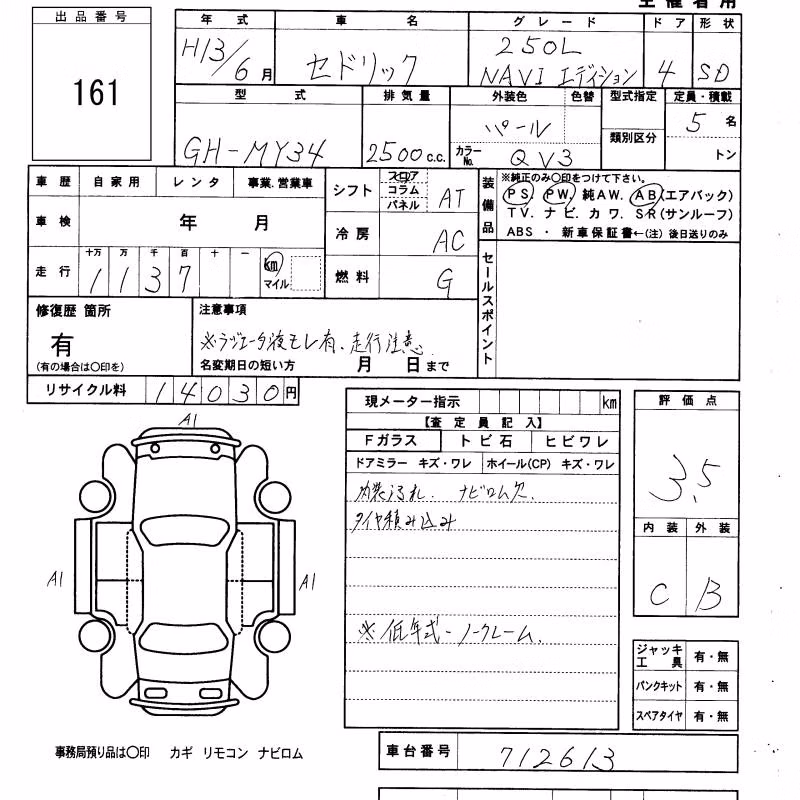 主催者用
出品番号
161
年式 車名 グレード ドア 形状
H13/6月 セドリック 250L NAVI エディション 4 SD
型式 排気量 外装色 色替 型式指定 定員・積載
GH-MY34 2500c.c. パール 類別区分 5名
カラーNo. QV3 トン
車歴 自家用 レンタ 事業.営業車
シフト フロア コラム パネル AT
装備品 ※純正のみ〇印をつけて下さい。
PS. PW. 純AW. AB(エアバック)
TV. ナビ. カワ. SR(サンルーフ)
ABS ・ 新車保証書←(注) 後日送りのみ
車検 年 月
冷房 AC
走行 十万 万 千 百 十 一
1 1 3 7 km マイル
燃料 G
セールスポイント
修復歴 箇所
有
(有の場合は〇印を)
注意事項
※ラジエータ液モレ有、走行注意
名変期日の短い方 月 日まで
リサイクル料 14030円
現メーター指示 km
【査定員記入】
Fガラス トビ石 ヒビワレ
ドアミラー キズ・ワレ ホイール(CP) キズ・ワレ
内装汚れ. ナビロム欠.
タイヤ積み込み
※低年式-ノークレーム.
評価点
3.5
内装 外装
C B
A1
A1 A1
ジャッキ工具 有・無
パンクキット 有・無
スペアタイヤ 有・無
事務局預り品は〇印 カギ リモコン ナビロム
車台番号 712613